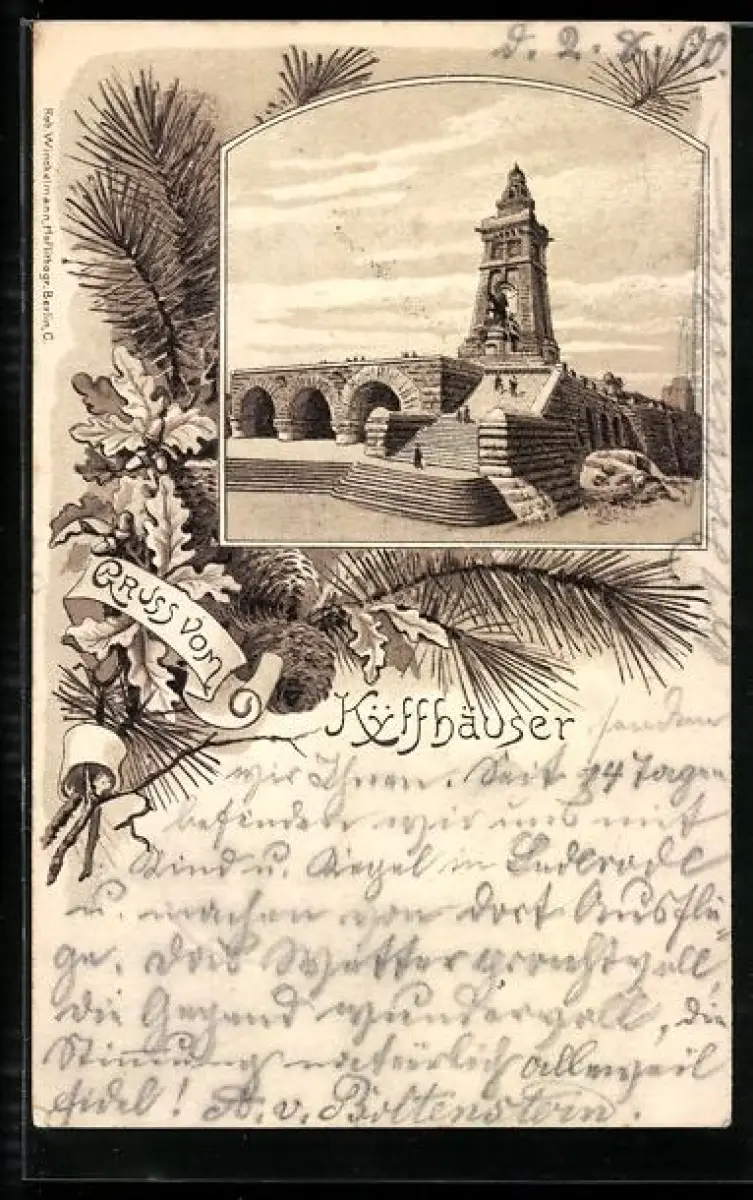 d. 2. 8. 00.
Rob. Winckelmann, Hoflithogr. Berlin, C.
GRUSS VOM
Kyffhäuser
senden
wir Ihnen. Seit 14 Tagen
befinden wir uns mit
Kind u. Kegel in
u. machen von dort Ausflü-
ge. Das Wetter prachtvoll,
die Gegend wundervoll, die
Stimmung natürlich alleweil
fidel! A. v. Boltenstern.